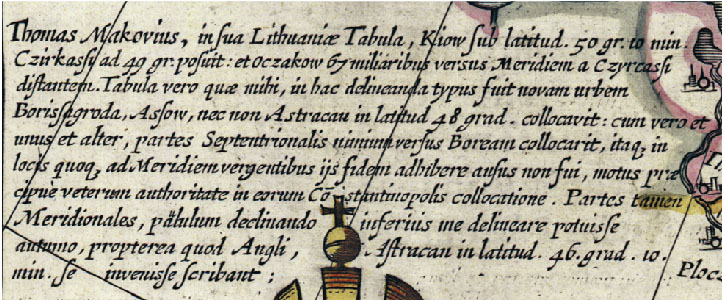 Thomas Makovius, in sua Lithuaniæ Tabula, Kiow sub latitud. 50 gr. 10 min.
Czirkassi ad 49 gr. posuit: et Oczakow 67 miliaribus versus Meridiem a Czyrcassi
distantem. Tabula vero quæ mihi, in hac delineanda typus fuit novam urbem
Borissagroda, Assow, nec non Astracan in latitud 48 grad. collocavit: cum vero et
unus et alter, partes Septentrionalis nimium versus Boream collocarit, itaq, in
locis quoq, ad Meridiem vergentibus ijs fidem adhibere ausus non fui, motus præ
cipue veterum authoritate in eorum Cōstantinopolis collocatione. Partes tamen
Meridionales, păbulum declinando inferius me delineare potuisse
autumo, propterea quod Angli, Astracan in latitud. 46. grad. 10.
min. se invenisse scribant:
Ploc